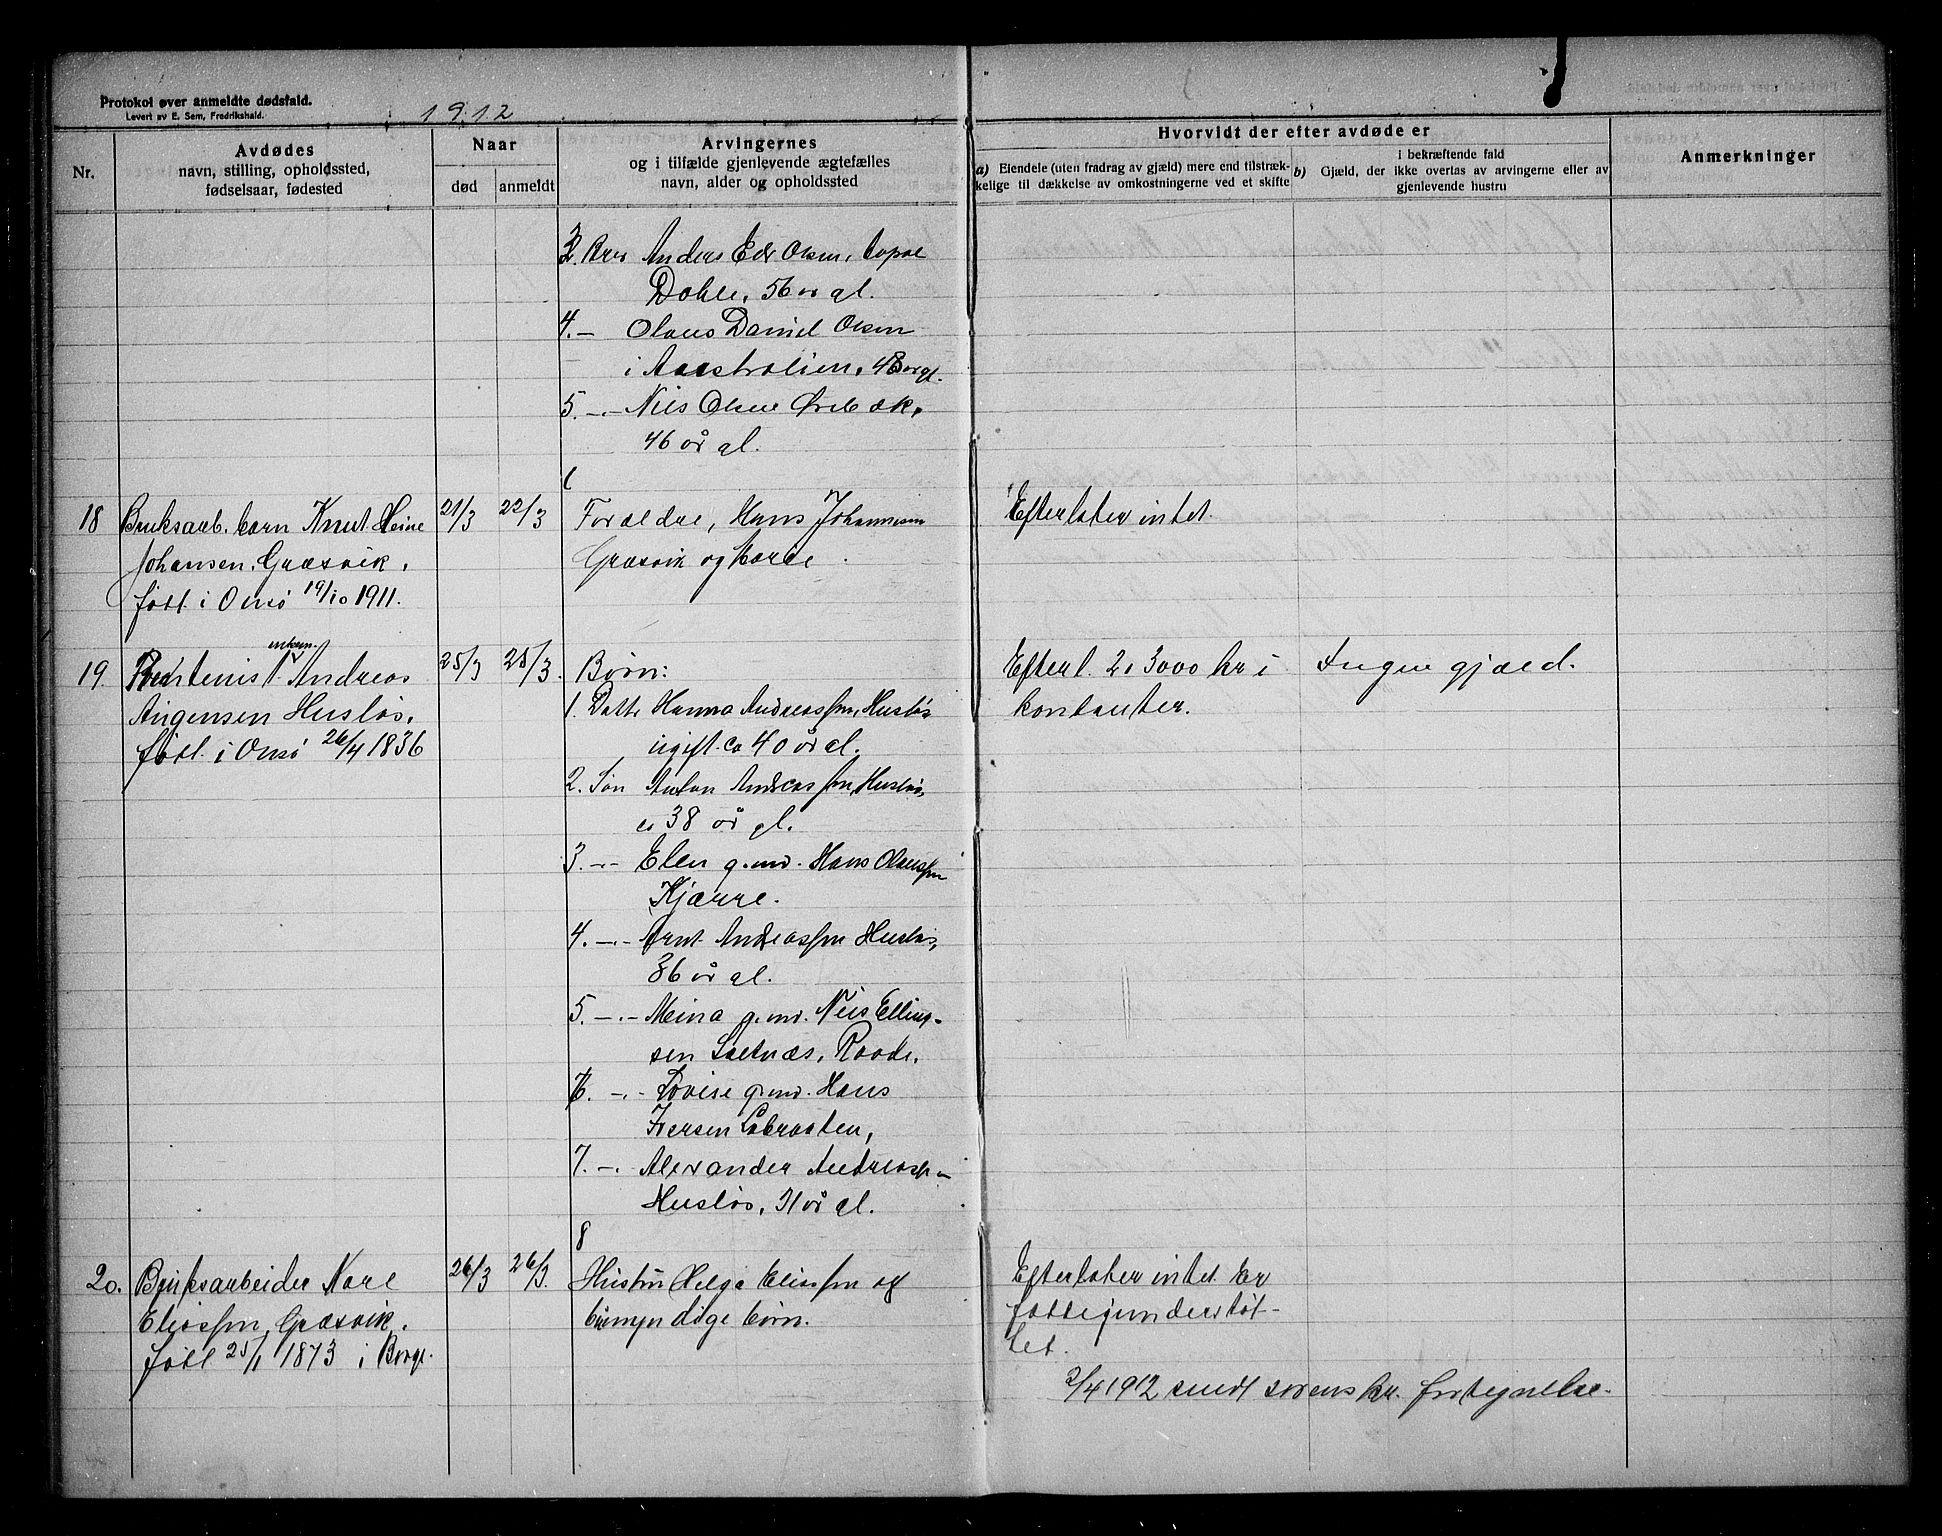 Protokol over anmeldte dødsfald.
Levert av E. Sem, Fredrikshald.
1912
Nr.
Avdødes
navn, stilling, opholdssted,
fødselsaar, fødested
Naar
død
anmeldt
Arvingernes
og i tilfælde gjenlevende ægtefælles
navn, alder og opholdssted
Hvorvidt der efter avdøde er
a) Eiendele (uten fradrag av gjæld) mere end tilstræk-
kelige til dækkelse av omkostningerne ved et skifte
b) I bekræftende fald
Gjæld, der ikke overtas av arvingerne eller av
gjenlevende hustru
Anmerkninger
3. Bror Anders Edv Olsen,
Dokle, 56 år gl.
4. — Olaus Daniel Olsen
i Australien, 48 år gl.
5. -.- Nils Olsen Ørebæk,
46 år gl.
18 Bruksarb. barn Knut Heine
Johansen, Græsvik,
født i Onsø 19/10 1911.
21/3 22/3
Foreldre, Hans Johannesen
Græsvik og
Efterlater intet.
19. Rentenist enkem. Andreas
Husløs,
født i Onsø 26/4 1836
25/3 25/3.
Børn:
1. Datt. Hanna Andreassen, Husløs
ugift ca 40 år gl.
2. Søn Anton Andreassen, Husløs,
ca 38 år gl.
3. -.- Elen g.m. Hans Olaussen
Kjærre.
4. -.- Arnt Andreassen Husløs,
36 år gl.
5. -.- Meina g.m. Nils Elling-
sen Saltnæs, Raade.
6. -.- Lovise g.m. Hans
Iversen Labraaten,
7. -.- Alexander Andreassen
Husløs, 31 år gl.
Efterl. 2 à 3000 kr i
kontanter.
Ingen gjæld.
8
20. Bruksarbeider Kare
Eliassen, Græsvik.
født 25/1 1873 i Borge.
26/3 26/3.
Hustru Helga Eliassen og
6 umyndige børn.
Efterlater intet. Er
fattigunderstøt-
tet.
2/4 1912 sendt sorenskr. fortegnelse.